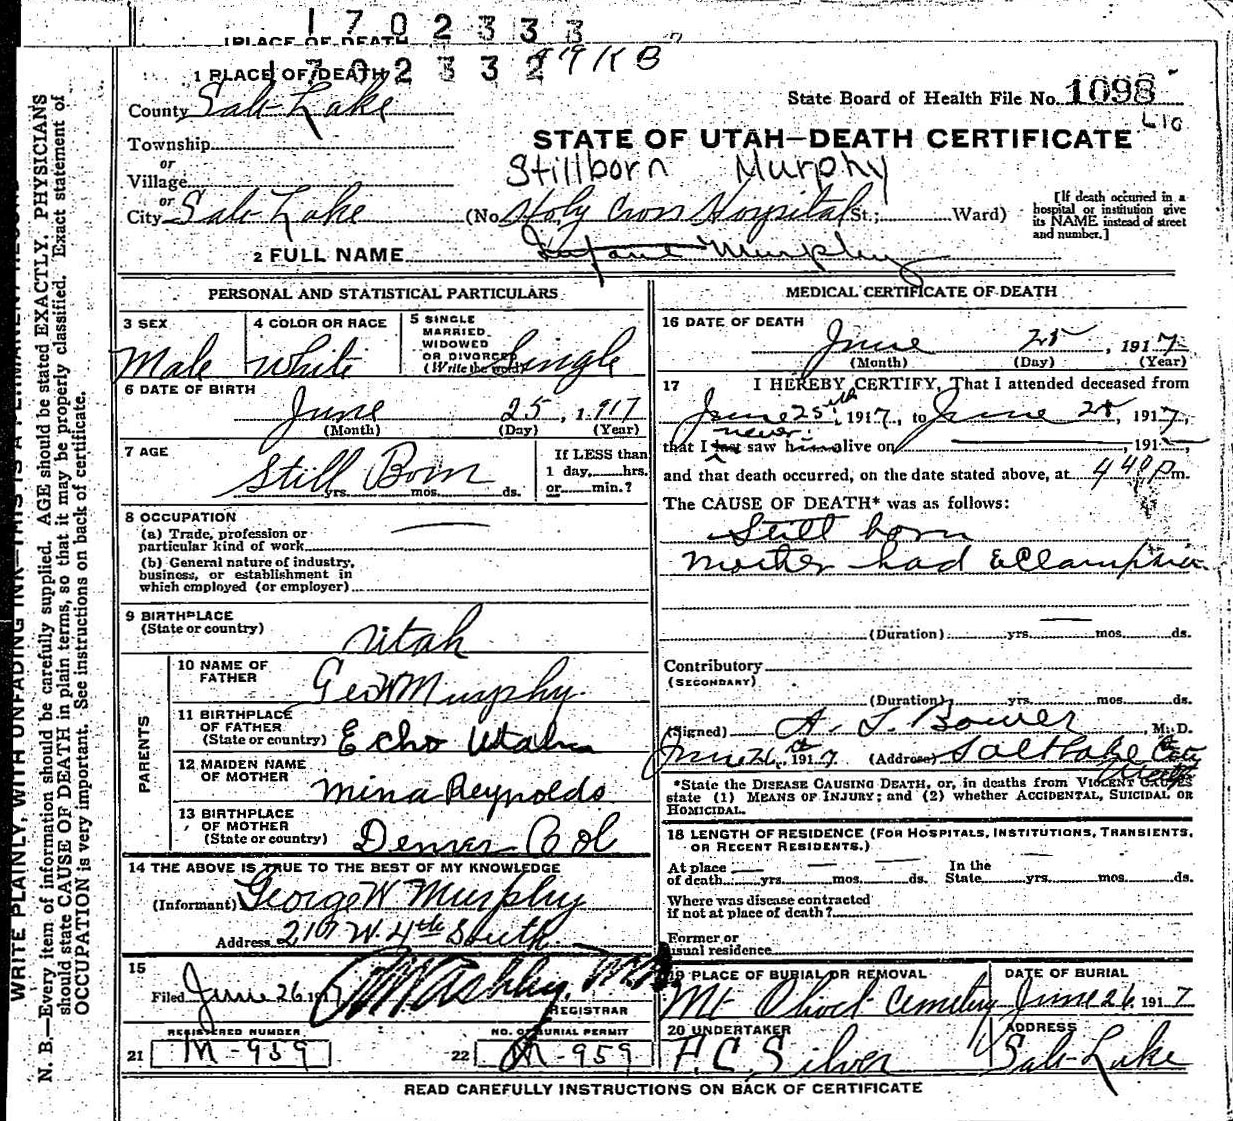 1702333
1 PLACE OF DEATH
1702332
1 PLACE OF DEATH
County Salt Lake
State Board of Health File No. 1098
Township
STATE OF UTAH—DEATH CERTIFICATE
or
Village
Stillborn Murphy
or
City Salt Lake (No. Holy Cross Hospital St.; Ward)
[If death occurred in a
hospital or institution give
its NAME instead of street
and number.]
2 FULL NAME Infant Murphy
PERSONAL AND STATISTICAL PARTICULARS
3 SEX
Male
4 COLOR OR RACE
White
5 SINGLE
MARRIED
WIDOWED
OR DIVORCED
(Write the word)
Single
6 DATE OF BIRTH
June 25, 1917
(Month) (Day) (Year)
7 AGE
Still Born
yrs. mos. ds.
If LESS than
1 day, hrs.
or min.?
8 OCCUPATION
(a) Trade, profession or
particular kind of work
(b) General nature of industry,
business, or establishment in
which employed (or employer)
9 BIRTHPLACE
(State or country)
Utah
PARENTS
10 NAME OF
FATHER
Geo W Murphy
11 BIRTHPLACE
OF FATHER
(State or country)
Echo Utah
12 MAIDEN NAME
OF MOTHER
Mina Reynolds
13 BIRTHPLACE
OF MOTHER
(State or country)
Denver Col
14 THE ABOVE IS TRUE TO THE BEST OF MY KNOWLEDGE
(Informant) George W Murphy
Address W. 4th South
15
Filed June 26 1917 Ashley, M.D.
REGISTRAR
REGISTERED NUMBER
21 M-959
NO. OF BURIAL PERMIT
22 M-959
MEDICAL CERTIFICATE OF DEATH
16 DATE OF DEATH
June 25, 1917
(Month) (Day) (Year)
17 I HEREBY CERTIFY, That I attended deceased from
June 25th, 1917, to June 25, 1917,
never
that I last saw him alive on , 191
and that death occurred, on the date stated above, at 4 40 P m.
The CAUSE OF DEATH* was as follows:
Still born
Mother had Eclampsia
(Duration) yrs. mos. ds.
Contributory
(SECONDARY)
(Duration) yrs. mos. ds.
(Signed) A. L. Bower M. D.
June 26th, 1917 (Address) Salt Lake City
Utah
*State the DISEASE CAUSING DEATH, or, in deaths from VIOLENT CAUSES
state (1) MEANS OF INJURY; and (2) whether ACCIDENTAL, SUICIDAL OR
HOMICIDAL.
18 LENGTH OF RESIDENCE (FOR HOSPITALS, INSTITUTIONS, TRANSIENTS,
OR RECENT RESIDENTS.)
At place In the
of death yrs. mos. ds. State yrs. mos. ds.
Where was disease contracted
if not at place of death?
Former or
usual residence
19 PLACE OF BURIAL OR REMOVAL
Mt Olivet Cemetery
DATE OF BURIAL
June 26 1917
20 UNDERTAKER
F. C. Silver
ADDRESS
Salt Lake
READ CAREFULLY INSTRUCTIONS ON BACK OF CERTIFICATE
WRITE PLAINLY, WITH UNFADING INK—THIS IS A PERMANENT RECORD
N. B.—Every item of information should be carefully supplied. AGE should be stated EXACTLY. PHYSICIANS
should state CAUSE OF DEATH in plain terms, so that it may be properly classified. Exact statement of
OCCUPATION is very important. See instructions on back of certificate.